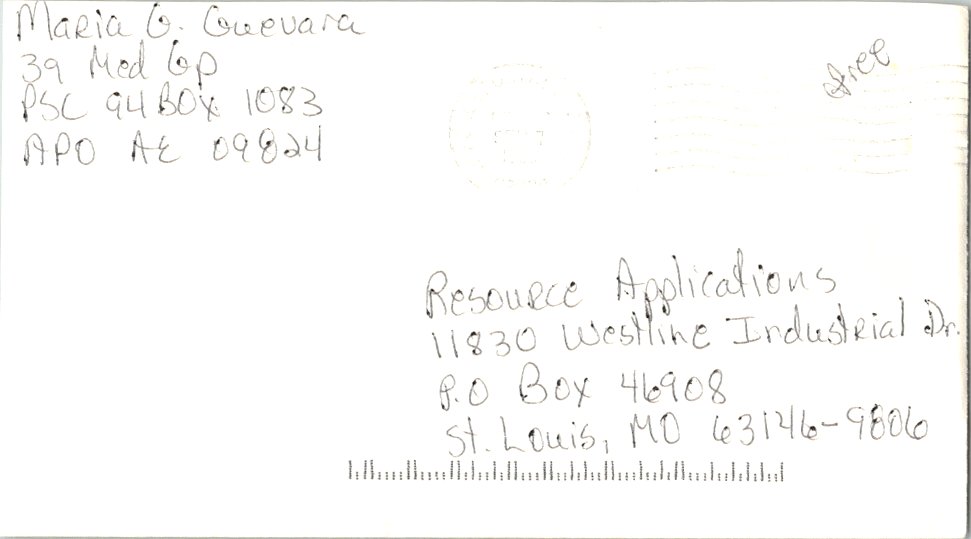 Maria G. Guevara
39 Med Gp
PSC 94 BOX 1083
APO AE 09824
free
Resource Applications
11830 Westline Industrial Dr.
P.O Box 46908
St. Louis, MO 63146-9806